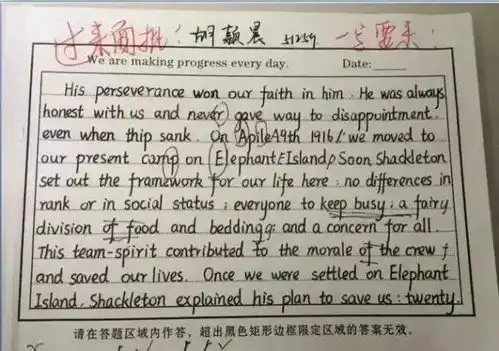 过来面批！胡颖晨 51259 一定要来！
We are making progress every day. Date:
His perseverance won our faith in him. He was always
honest with us and never gave way to disappointment.
even when thip sank. On Apile A9th 1916/ we moved to
our present camp on Elephant Island, Soon Shackleton
set out the framework for our life here : no differences in
rank or in social status ; everyone to keep busy ; a fairy
division of food and bedding ; and a concern for all.
This team-spirit contributed to the morale of the crew
and saved our lives. Once we were settled on Elephant
Island, Shackleton explained his plan to save us : twenty
请在答题区域内作答，超出黑色矩形边框限定区域的答案无效。